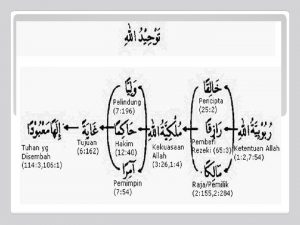 تَوْحِيْدُ اللهِ
خَالِقًا
وَلِيًّا
Pencipta
(25:2)
Pelindung
(7:196)
رُبُوْبِيَّةُ اللهِ
رَازِقًا
مُلْكِيَّةُ اللهِ
حَاكِمًا
غَايَةً
إِلَهًا مَعْبُوْدًا
Tuhan yg
Disembah
(114:3,106:1)
Tujuan
(6:162)
Hakim
(12:40)
Kekuasaan
Allah
(3:26,1:4)
Pemberi
Rezeki (65:3)
Ketentuan Allah
(1:2,7:54)
آمِرًا
مَالِكًا
Pemimpin
(7:54)
Raja/Pemilik
(2:155,2:284)